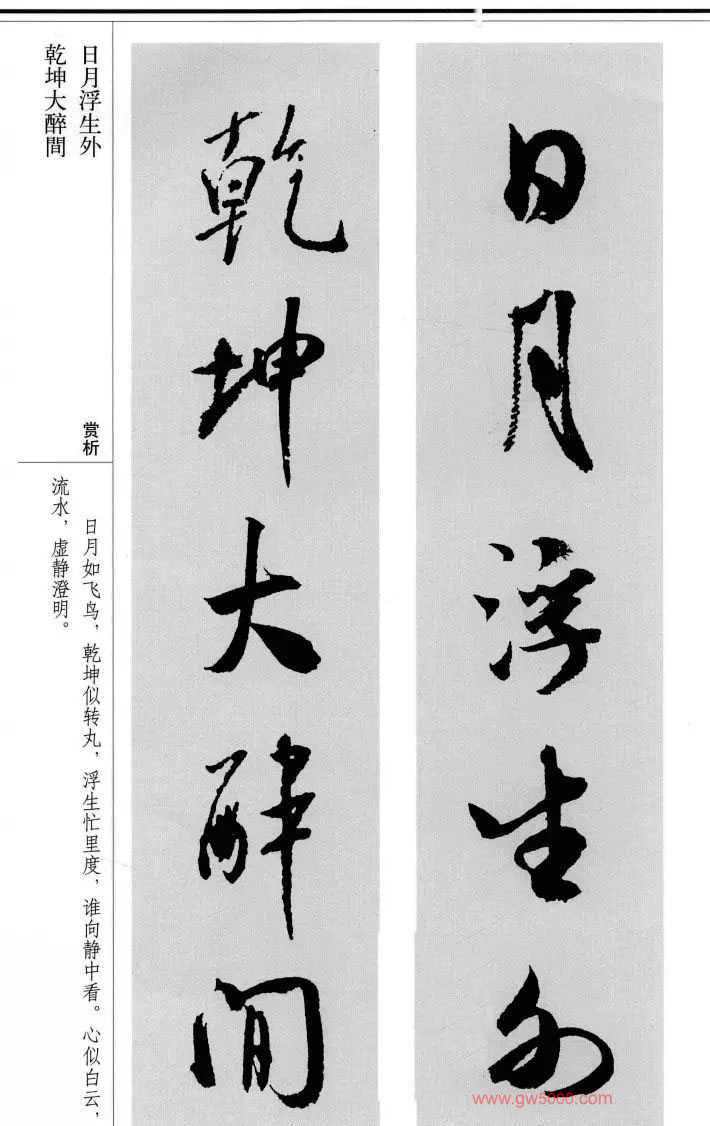 日月浮生外
乾坤大醉間
日月浮生外
乾坤大醉間
赏析
日月如飞鸟，乾坤似转丸，浮生忙里度，谁向静中看。心似白云，
流水，虚静澄明。
www.gw5000.com